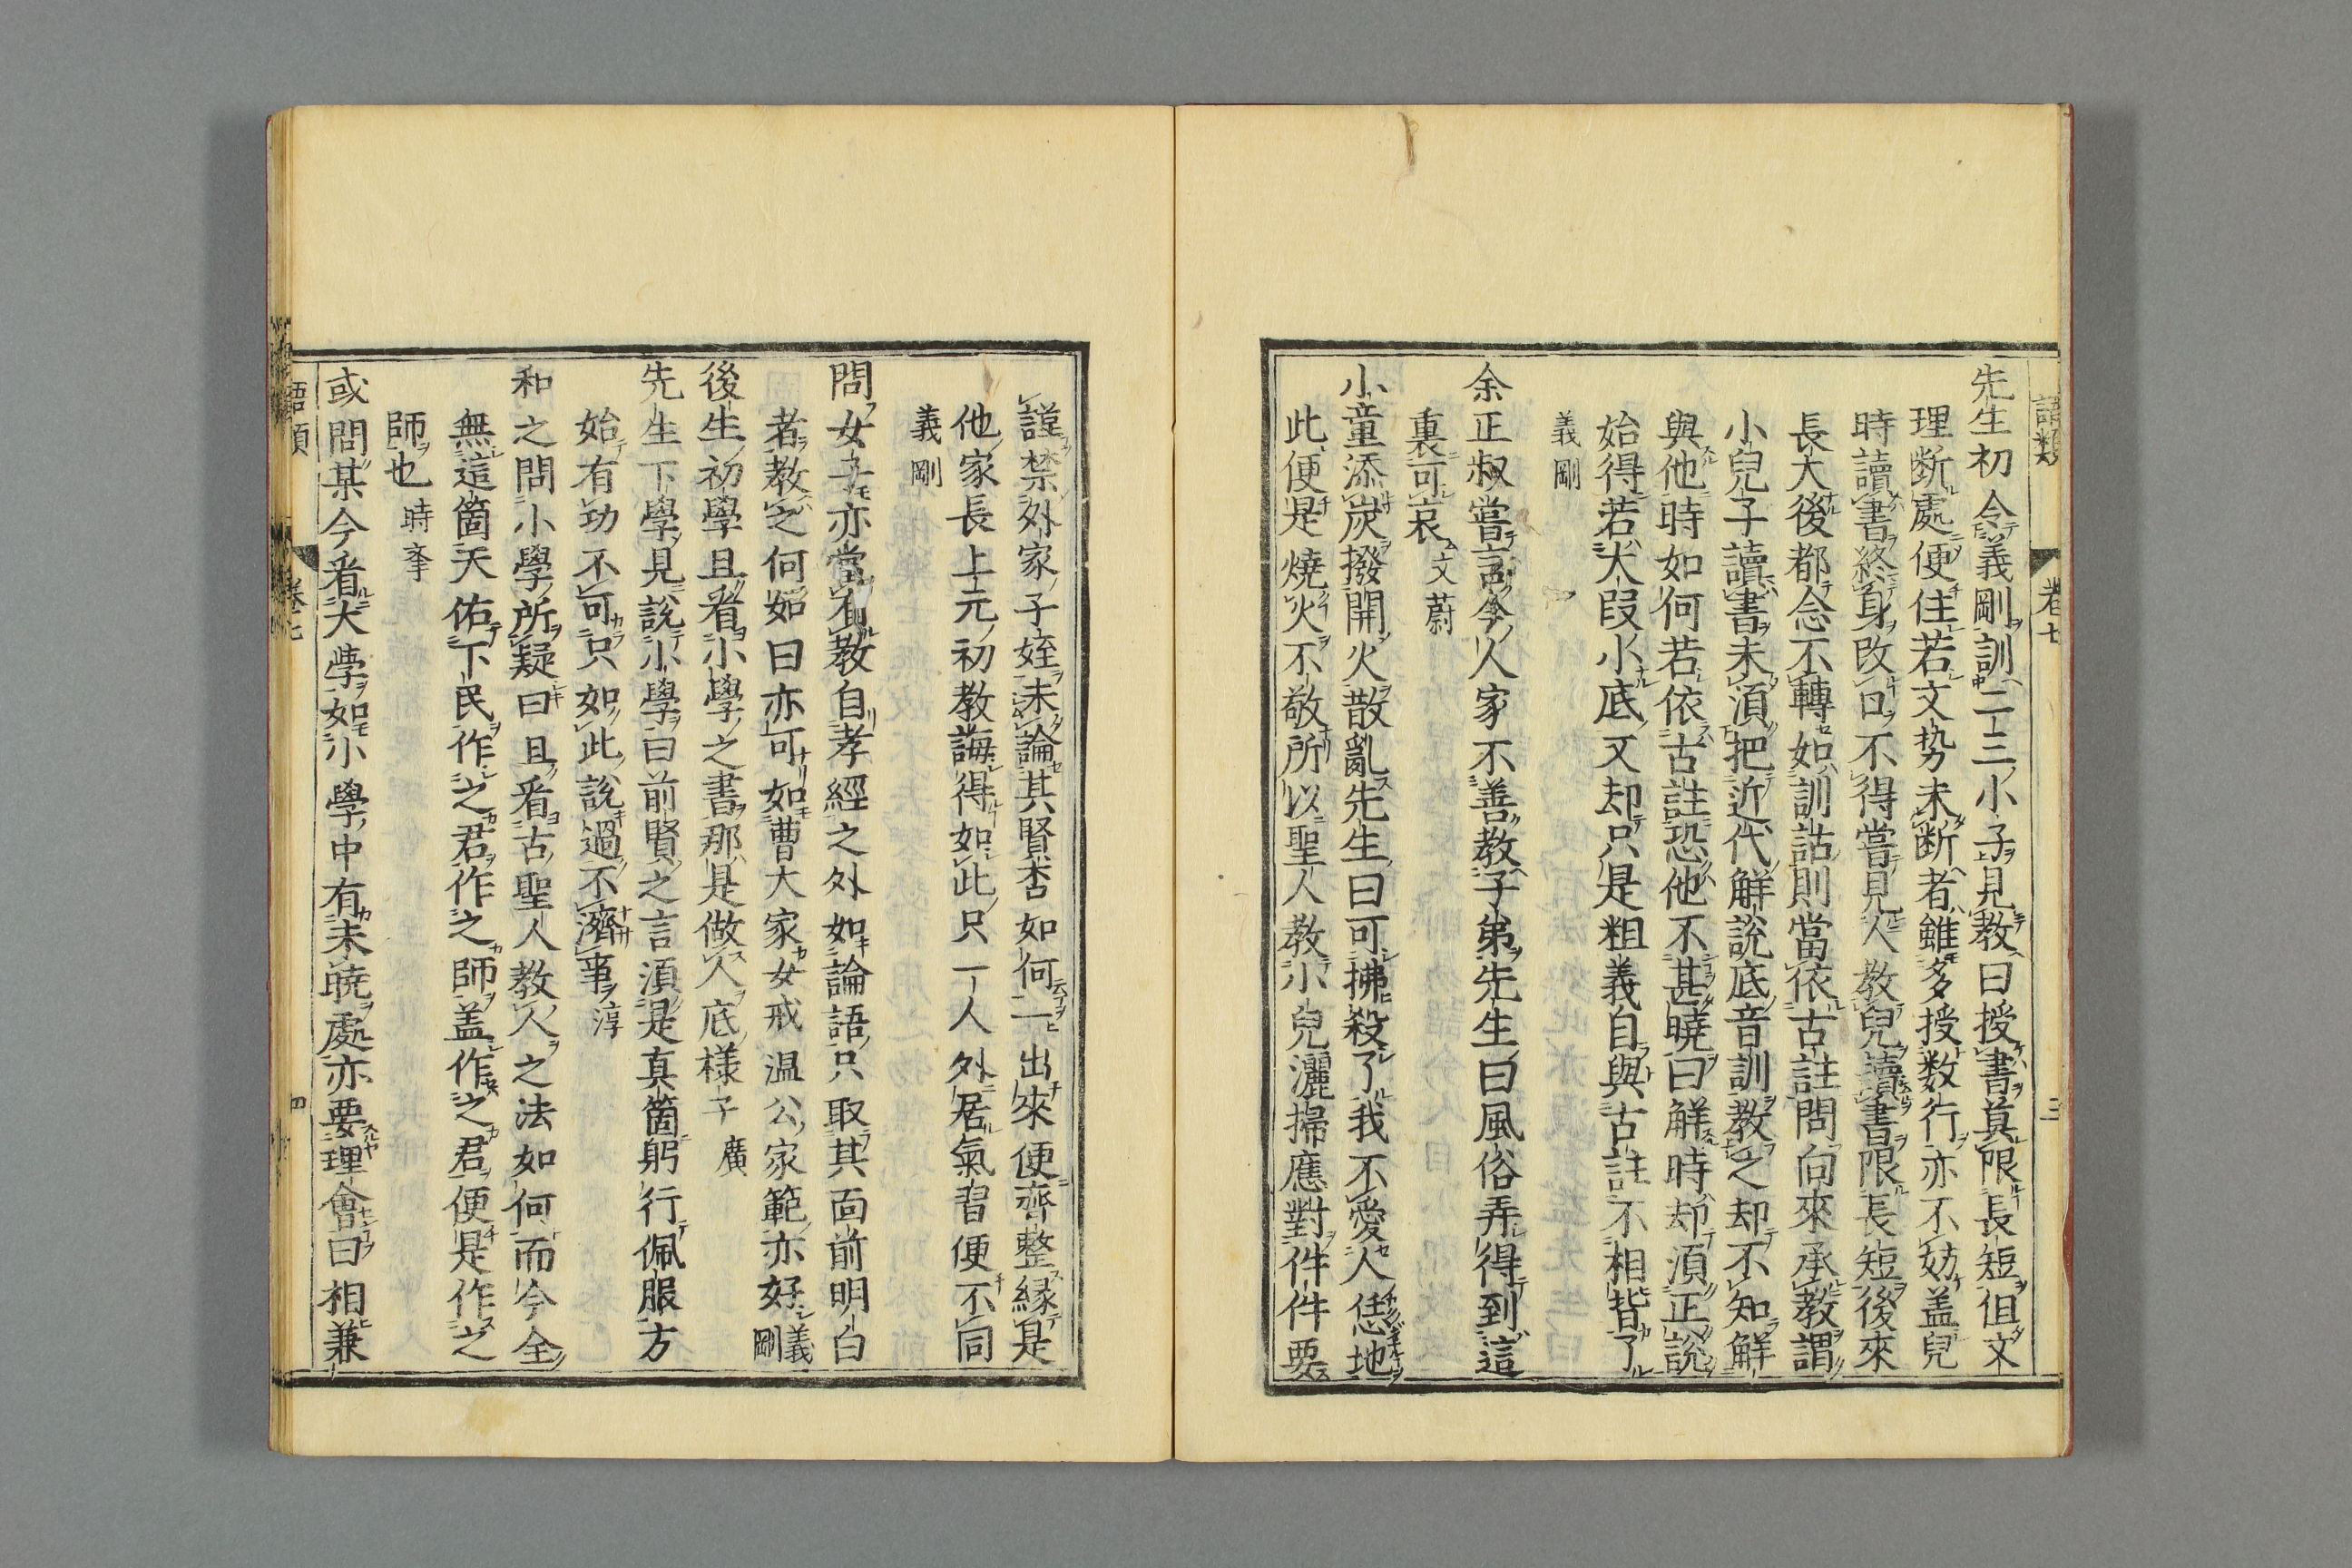 語類 卷七 三
先生初令義剛訓二三小子見教曰授書莫限長短但文
理斷處便住若文势未断者雖多授数行亦不妨盖兒
時讀書終身改口不得嘗見人教兒讀書限長短後來
長大後都念不轉如訓詁則當依古註問向來承教謂
小兒子讀書未須把近代解說底音訓教之却不知解
與他時如何若依古註恐他不甚曉曰解時却須正說
始得若大段小底又却只是粗義自與古註不相背了
義剛
余正叔嘗言今人家不善教子弟先生曰風俗弄得到這
裏可哀文蔚
小童添炭撥開火散亂先生曰可拂殺了我不愛人恁地
此便是燒火不敬所以聖人教小兒灑掃應對件件要
謹禁外家子姪未論其賢否如何一出來便齊整緣是
他家長上元初教誨得如此只一人外居氣習便不同
義剛
問女子亦當有教自孝經之外如論語只取其面前明白
者教之何如曰亦可如曹大家女戒温公家範亦好義剛
後生初學且看小學之書那是做人底樣子廣
先生下學見說小學曰前賢之言須是真箇躬行佩服方
始有功不可只如此說過不濟事淳
和之問小學所疑曰且看古聖人教人之法如何而今全
無這箇天佑下民作之君作之師盖作之君便是作之
師也時舉
或問某今看大學如小學中有未曉處亦要理會曰相兼
語類 卷七 四